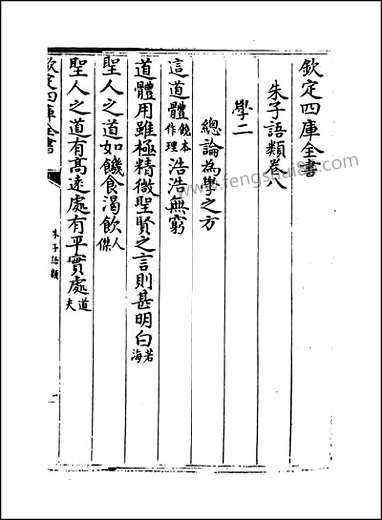 欽定四庫全書
朱子語類卷八
學二
總論為學之方
這道體饒本作理浩浩無窮
道體用雖極精微聖賢之言則甚明白若海
聖人之道如饑食渴飲人傑
聖人之道有髙逺處有平實處道夫
欽定四庫全書
朱子語類
一
www.fengshui86.com